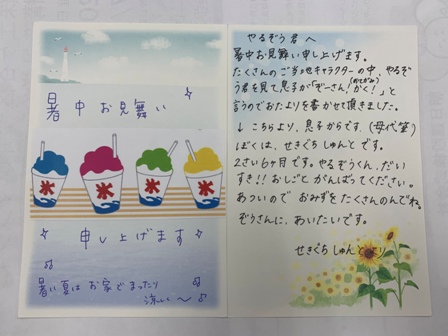 暑中お見舞い
氷
氷
氷
氷
申し上げます
暑い夏はお家でまったり
涼しい〜♪
やるぞう君へ
暑中お見舞い申し上げます。
たくさんのご当地キャラクターの中、やるぞ
う君を見て息子が「ぞーさん!(おてがみ)かく!」と
言うのでおたよりを書かせて頂きました。
↓こちらより、息子からです。(母代筆)
ぼくは、せきぐちしゅんとです。
2さい6ヶ月です。やるぞうくん、だい
すき!!おしごとがんばってください。
あついので おみずをたくさんのんでね。
ぞうさんに、あいたいです。
せきぐちしゅんとより